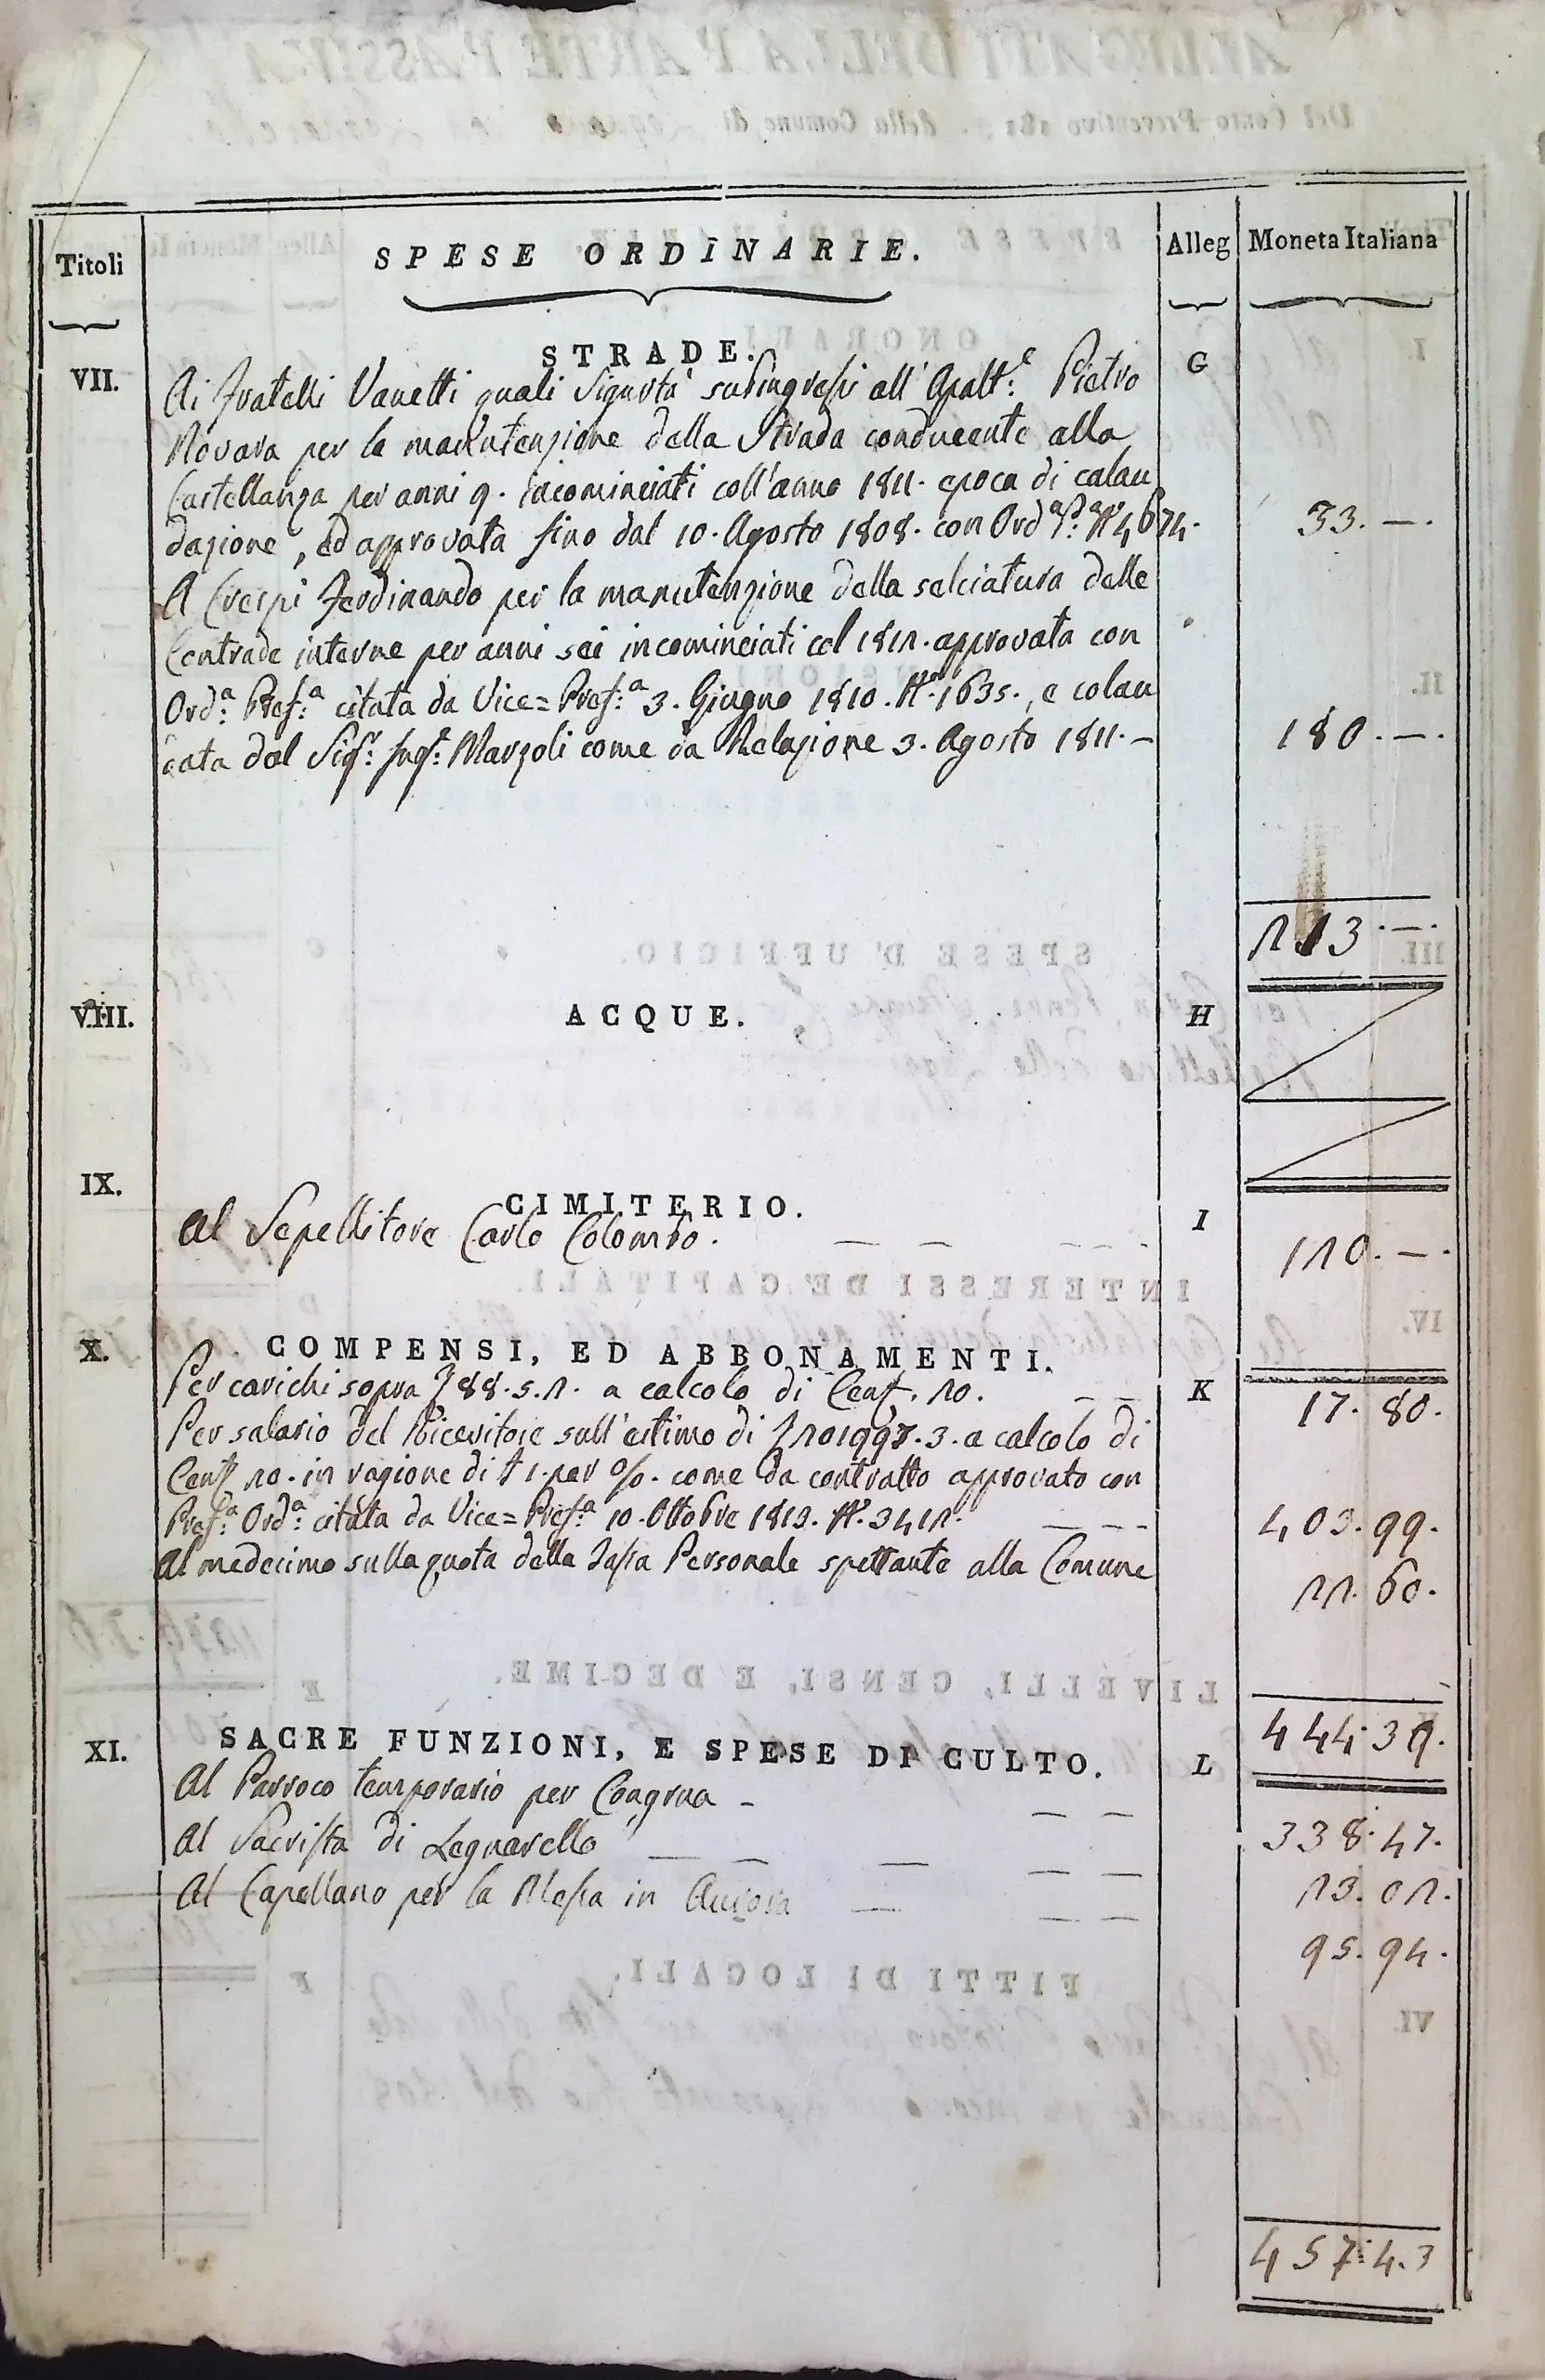 Titoli
SPESE ORDINARIE.
Alleg
Moneta Italiana
VII.
STRADE.
G
Ai Fratelli Vanetti quali Sigurtà subingressi all' Apalt.e Pietro
Novara per la manutenzione della Strada conducente alla
Castellanza per anni 9. incominciati coll'anno 1811. epoca di colau
dazione, ed approvata fino dal 10. Agosto 1808. con Ord.a P.a N.° 4674.
33. —.
A Crespi Ferdinando per la manutenzione della selciatura delle
Contrade interne per anni sei incominciati col 1812. approvata con
Ord.a Pref.a citata da Vice=Pref.a 3. Giugno 1810. N.° 1635., e colau
data dal Sig.r Ing.r Marzoli come da Relazione 3. Agosto 1811. —
180. —.
213. —.
VIII.
ACQUE.
H
IX.
CIMITERIO.
I
Al Sepellitore Carlo Colombo. — — — — —
120. —.
X.
COMPENSI, ED ABBONAMENTI.
K
Per carichi sopra 88.5.2. a calcolo di Cent. 20. — —
17. 80.
Per salario del Ricevitore sull'estimo di 201997.3. a calcolo di
Cent. 20. in ragione di 1. per %. come da contratto approvato con
Pref.a Ord.a citata da Vice=Pref.a 10. Ottobre 1813. N.° 3412. — — —
403. 99.
Al medecimo sulla quota della Tassa Personale spettante alla Comune
22. 60.
444. 39.
XI.
SACRE FUNZIONI, E SPESE DI CULTO.
L
Al Parroco temporario per Congrua — — —
338. 47.
Al Sacrista di Legnarello — — — — —
23. 02.
Al Capellano per la Messa in Aurora — — —
95. 94.
457. 43